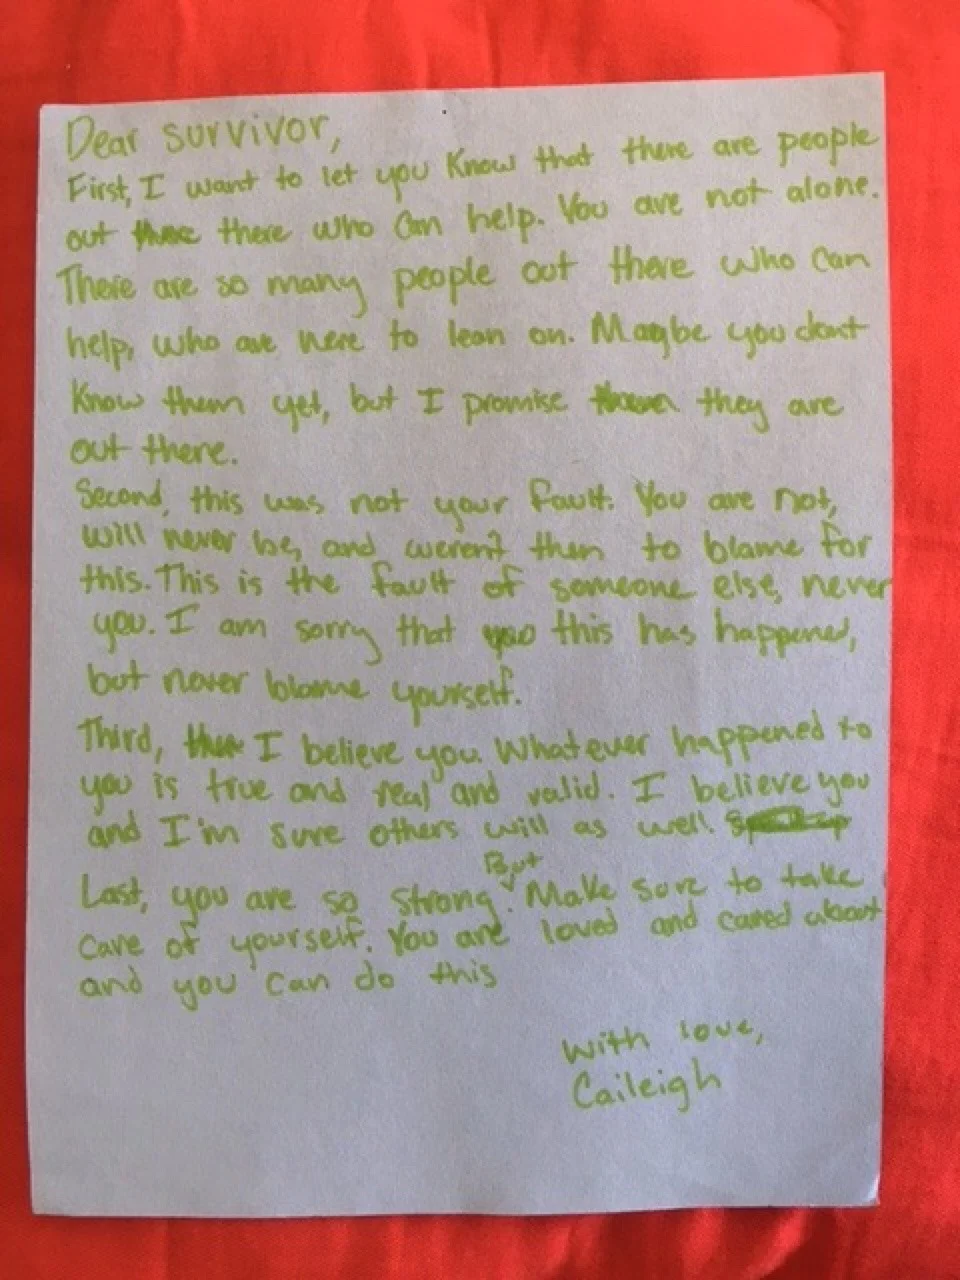 Dear survivor,
First, I want to let you know that there are people
out there who can help. You are not alone.
There are so many people out there who can
help, who are here to lean on. Maybe you dont
know them yet, but I promise they are
out there.
Second, this was not your fault. You are not,
will never be, and weren't then to blame for
this. This is the fault of someone else, never
you. I am sorry that this has happened,
but never blame yourself.
Third, I believe you. Whatever happened to
you is true and real and valid. I believe you
and I'm sure others will as well.
But
Last, you are so strong. Make sure to take
care of yourself. You are loved and cared about
and you can do this
With love,
Caileigh